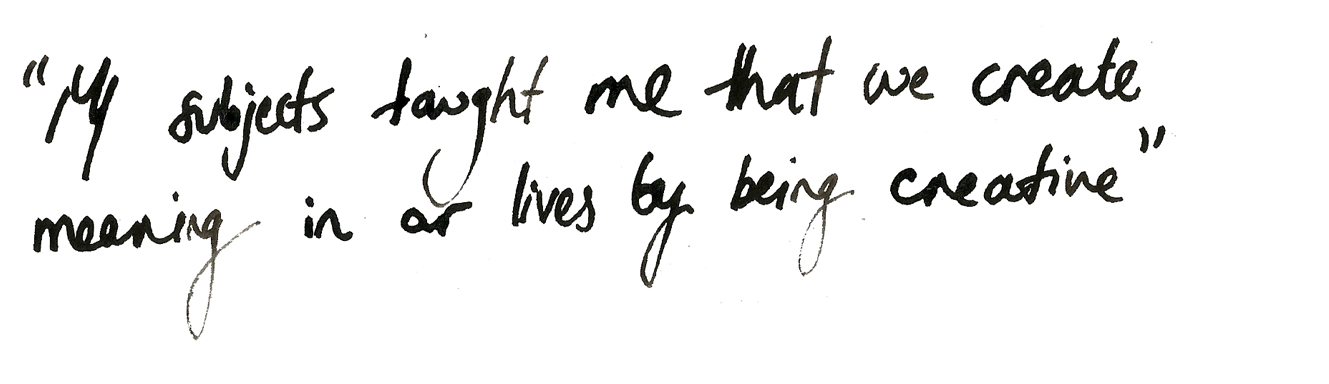 "My subjects taught me that we create
meaning in our lives by being creative"